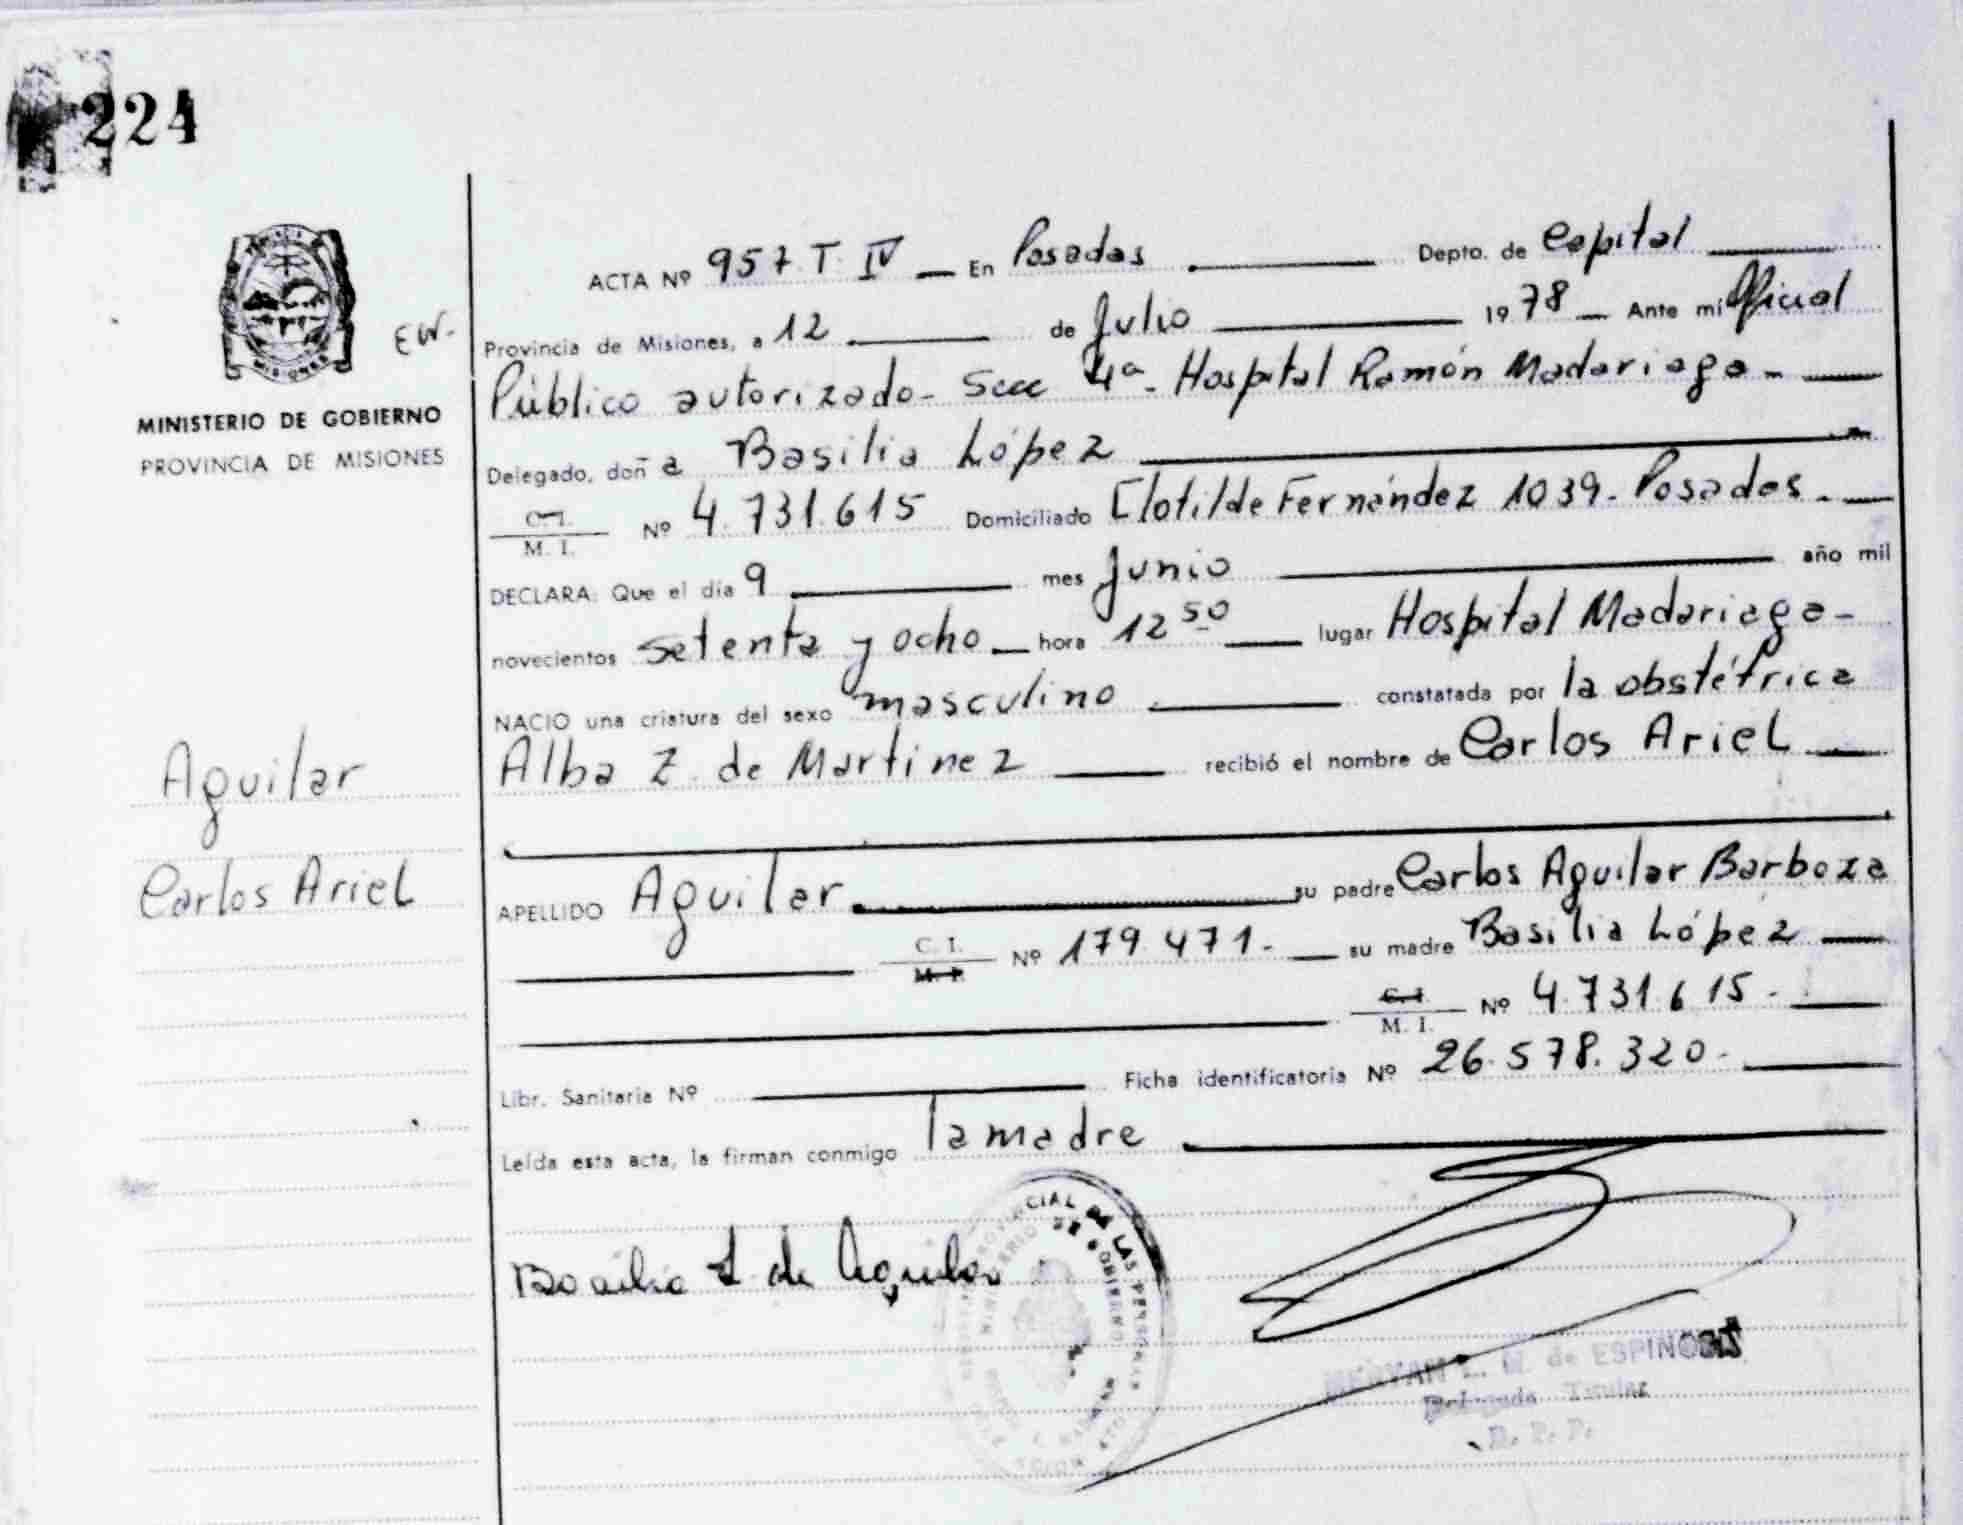 224
MINISTERIO DE GOBIERNO
PROVINCIA DE MISIONES
EW.-
Aguilar
Carlos Ariel
ACTA Nº 957. T. IV — En Posadas Depto. de Capital
Provincia de Misiones, a 12 de Julio 1978 — Ante mi Oficial
Público autorizado - Secc 4ª - Hospital Ramón Madariaga -
Delegado, doña Basilia López
C. I. / M. I. Nº 4.731.615 Domiciliado Clotilde Fernández 1039 - Posadas -
DECLARA: Que el día 9 mes Junio año mil
novecientos setenta y ocho — hora 12 50 — lugar Hospital Madariaga -
NACIO una criatura del sexo masculino constatada por la obstétrica
Alba Z. de Martinez recibió el nombre de Carlos Ariel
APELLIDO Aguilar su padre Carlos Aguilar Barboza
C. I. / M. I. Nº 179.471 - su madre Basilia López
C. I. / M. I. Nº 4.731.615 -
Libr. Sanitaria Nº Ficha identificatoria Nº 26.578.320 -
Leída esta acta, la firman conmigo la madre
Basilia L de Aguilar
PROVINCIAL DE LAS PERSONAS
MINISTERIO DE GOBIERNO
MERYAN L. de ESPINOSA
Delegada Titular
R. P. P.